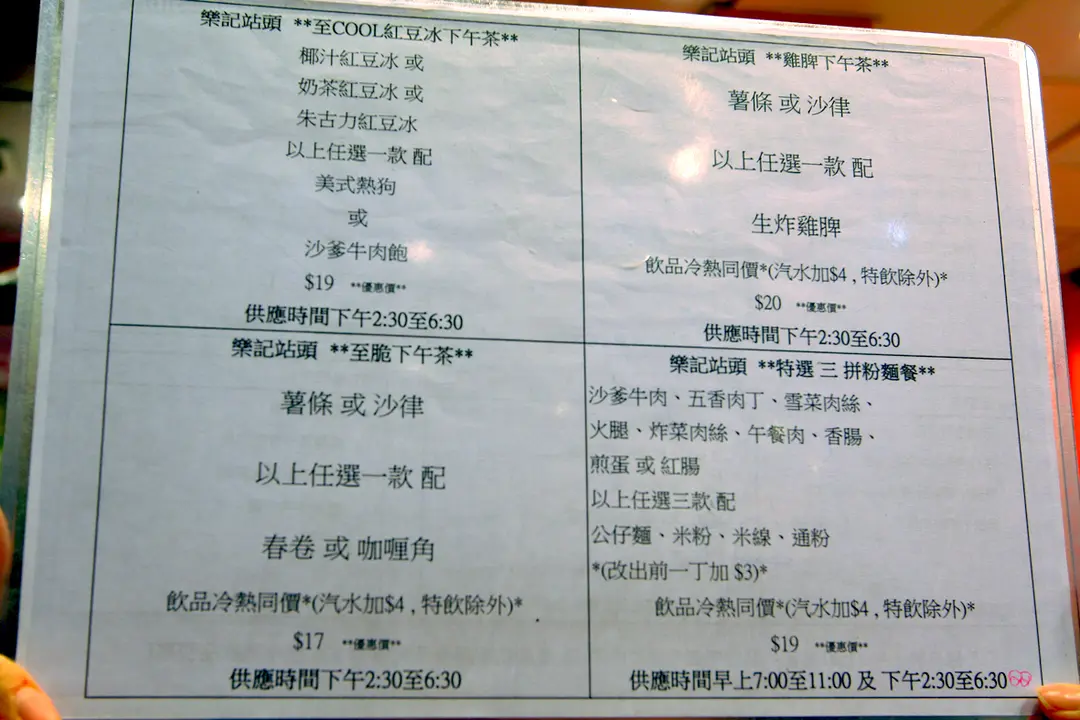 樂記站頭 **至COOL紅豆冰下午茶**
椰汁紅豆冰 或
奶茶紅豆冰 或
朱古力紅豆冰
以上任選一款 配
美式熱狗
或
沙爹牛肉飽
$19 **優惠價**
供應時間下午2:30至6:30
樂記站頭 **雞脾下午茶**
薯條 或 沙律
以上任選一款 配
生炸雞脾
飲品冷熱同價*(汽水加$4 , 特飲除外)*
$20 **優惠價**
供應時間下午2:30至6:30
樂記站頭 **至脆下午茶**
薯條 或 沙律
以上任選一款 配
春卷 或 咖喱角
飲品冷熱同價*(汽水加$4 , 特飲除外)*
$17 **優惠價**
供應時間下午2:30至6:30
樂記站頭 **特選 三 拼粉麵餐**
沙爹牛肉、五香肉丁、雪菜肉絲、
火腿、炸菜肉絲、午餐肉、香腸、
煎蛋 或 紅腸
以上任選三款 配
公仔麵、米粉、米線、通粉
*(改出前一丁加 $3)*
飲品冷熱同價*(汽水加$4 , 特飲除外)*
$19 **優惠價**
供應時間早上7:00至11:00 及 下午2:30至6:30